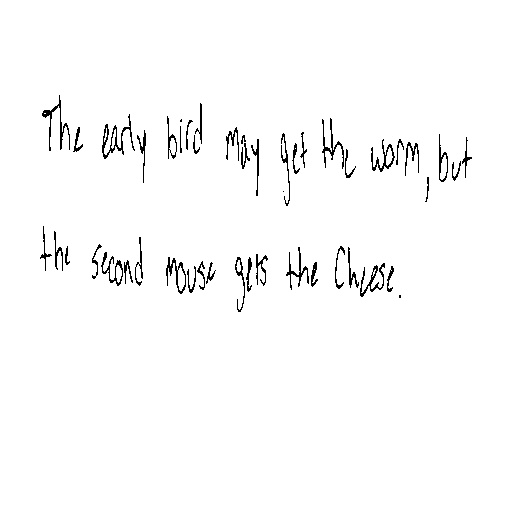 The early bird may get the worm, but
the second mouse gets the Cheese.